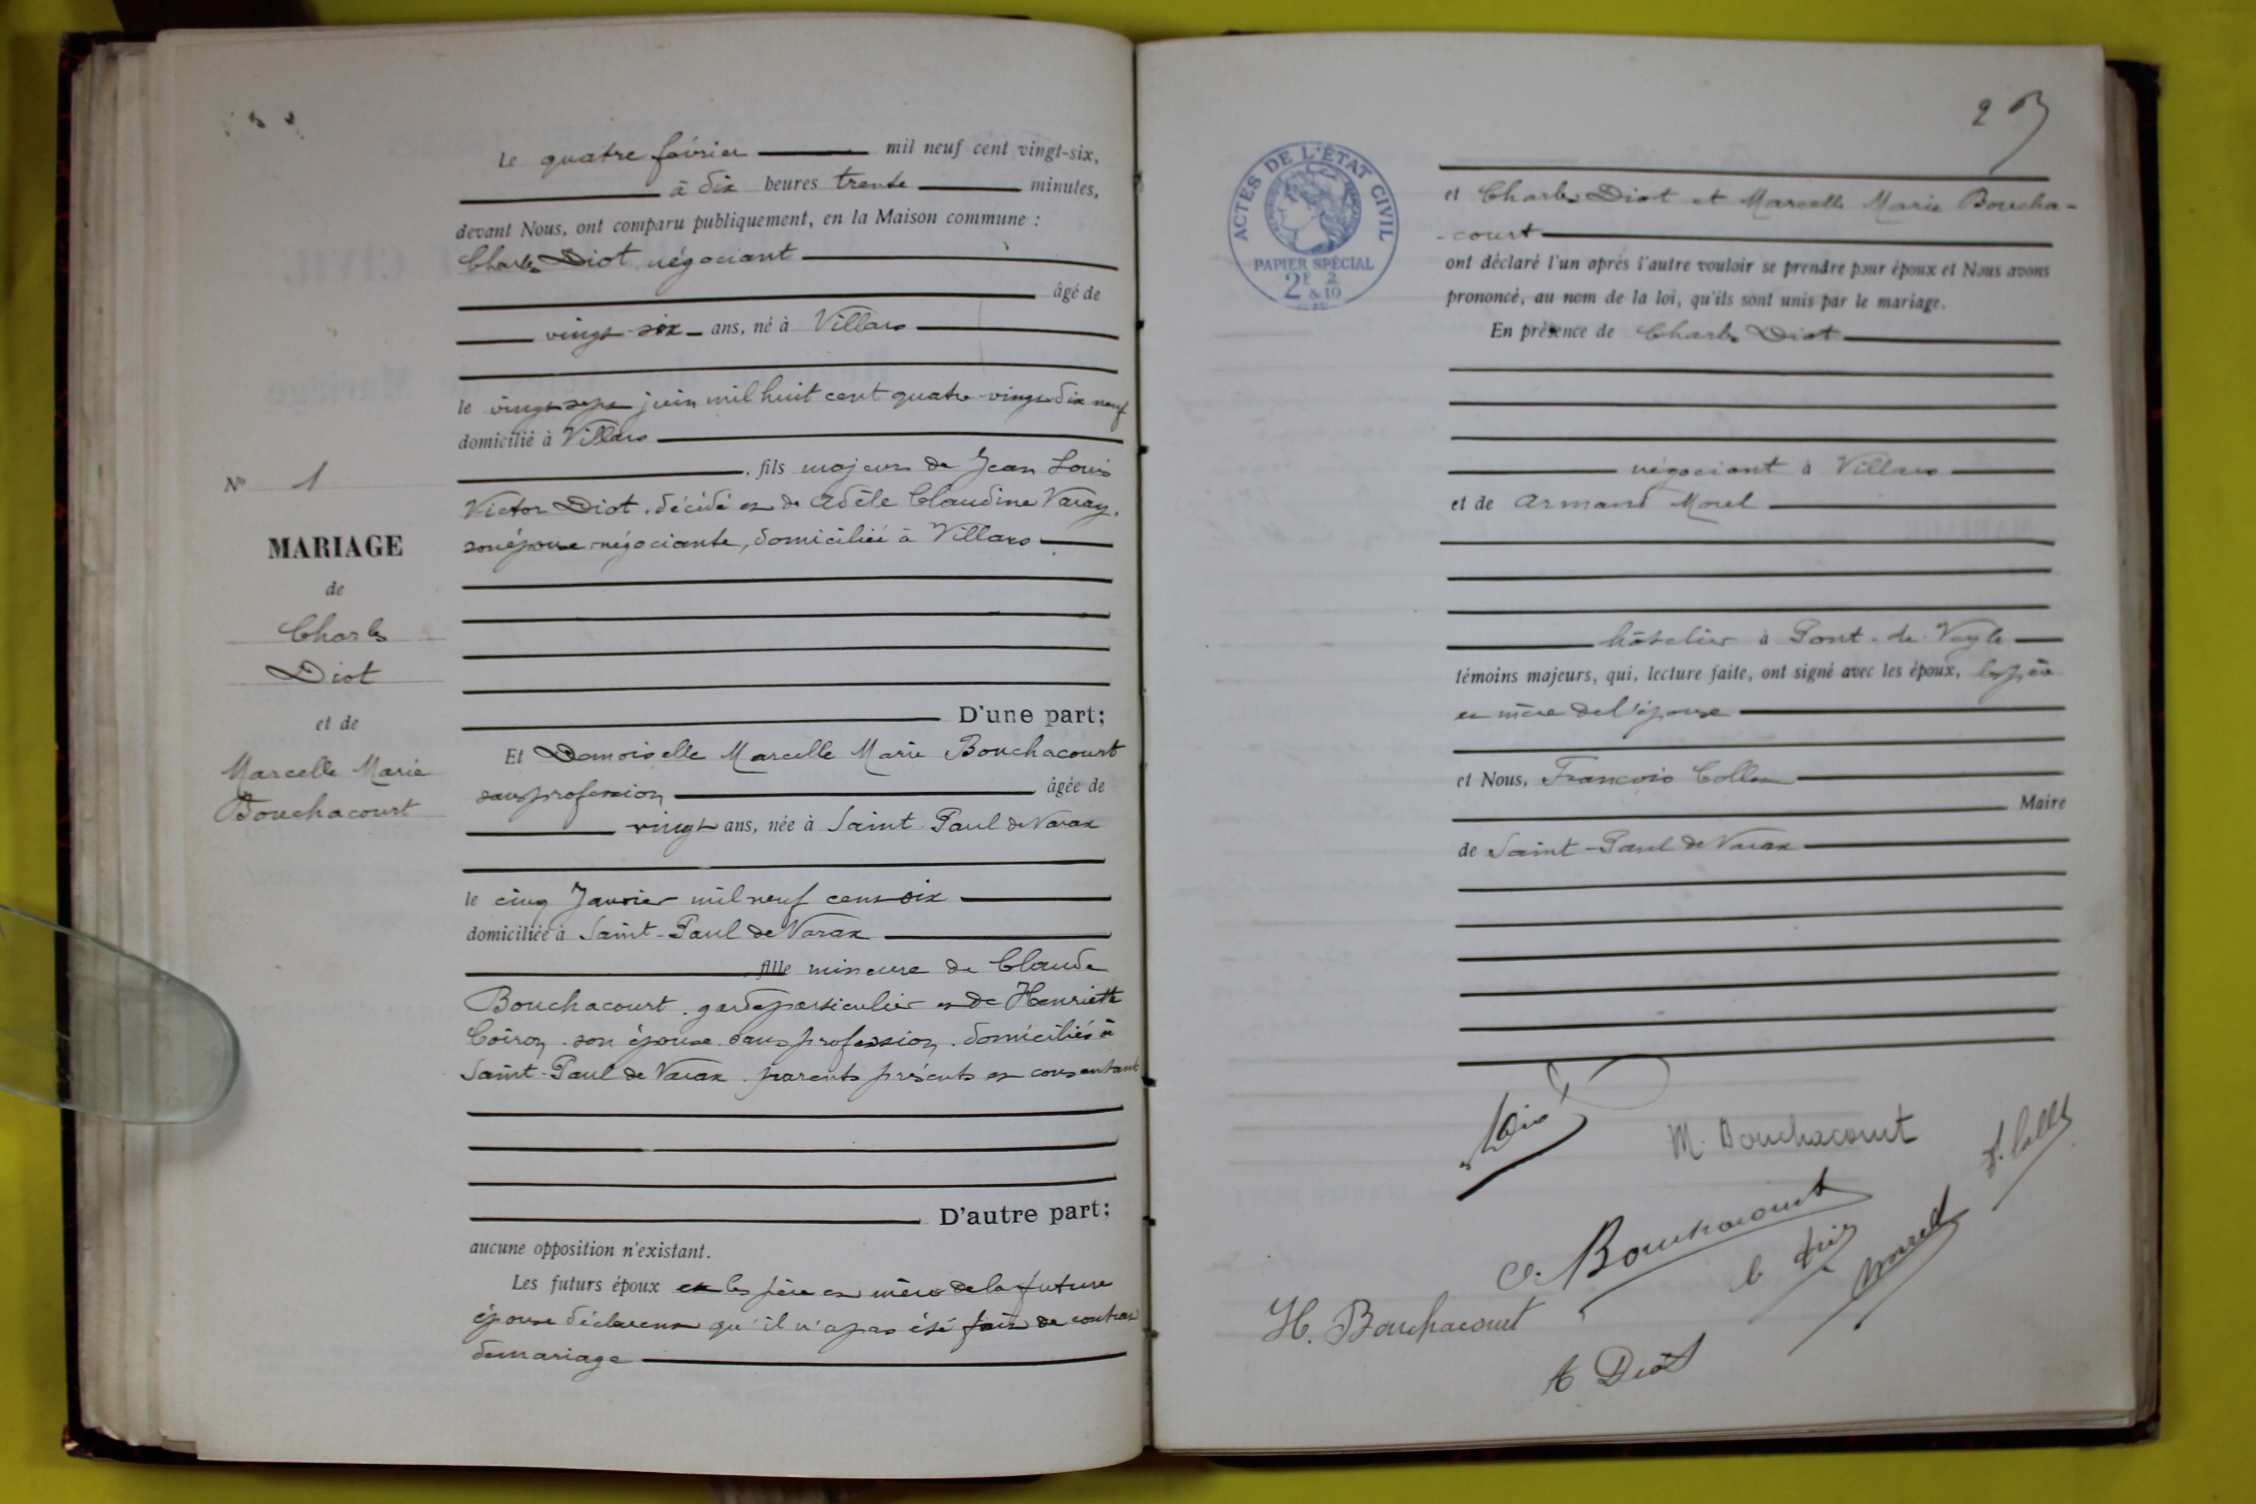 Le quatre février mil neuf cent vingt-six,
à dix heures trente minutes,
devant Nous, ont comparu publiquement, en la Maison commune :
Charles Diot, négociant
âgé de
vingt-six ans, né à Villars
le vingt sept juin mil huit cent quatre-vingt dix neuf
domicilié à Villars
, fils majeur de Jean Louis
Victor Diot, décédé et de Adèle Claudine Varay,
son épouse négociante, domiciliée à Villars
D'une part;
Nº 1
MARIAGE
de
Charles
Diot
et de
Marcelle Marie
Bouchacourt
Et Demoiselle Marcelle Marie Bouchacourt
sans profession âgée de
vingt ans, née à Saint Paul de Varax
le cinq Janvier mil neuf cent six
domiciliée à Saint-Paul de Varax
fille mineure de Claude
Bouchacourt, garde particulier et de Henriette
Coiron, son épouse, sans profession, domiciliés à
Saint-Paul de Varax, parents présents et consentant
D'autre part;
aucune opposition n'existant.
Les futurs époux et les père et mère de la future
épouse déclarent qu'il n'a pas été fait de contrat
de mariage
2
ACTES DE L'ÉTAT CIVIL
PAPIER SPÉCIAL
2f & 2/10
et Charles Diot et Marcelle Marie Boucha-
-court
ont déclaré l'un après l'autre vouloir se prendre pour époux et Nous avons
prononcé, au nom de la loi, qu'ils sont unis par le mariage.
En présence de Charles Diot
négociant à Villars
et de Armand Morel
hôtelier à Pont-de-Veyle
témoins majeurs, qui, lecture faite, ont signé avec les époux, les père
et mère de l'épouse
et Nous, François Collet
Maire
de Saint-Paul de Varax
Diot
M. Bouchacourt
F. Collet
C. Bouchacourt
Morel
H. Bouchacourt
A Diot